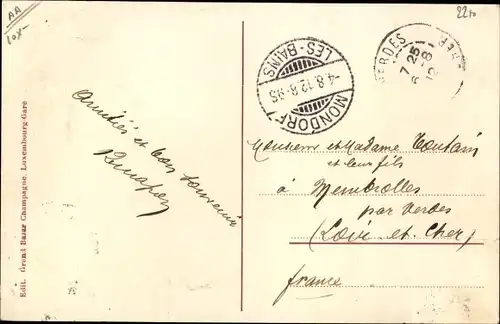 AA
10x-
22to
Edit. Grand Bazar Champagne, Luxembourg-Gare
Amitiés et bon souvenir
MONDORF
LES-BAINS
-4.8.12.8-9S
VERDES
7 25
5 -8
12
CHER
Monsieur et Madame Toutain
et leur fils
à Membrolles
par Verdes
(Loir et Cher)
france